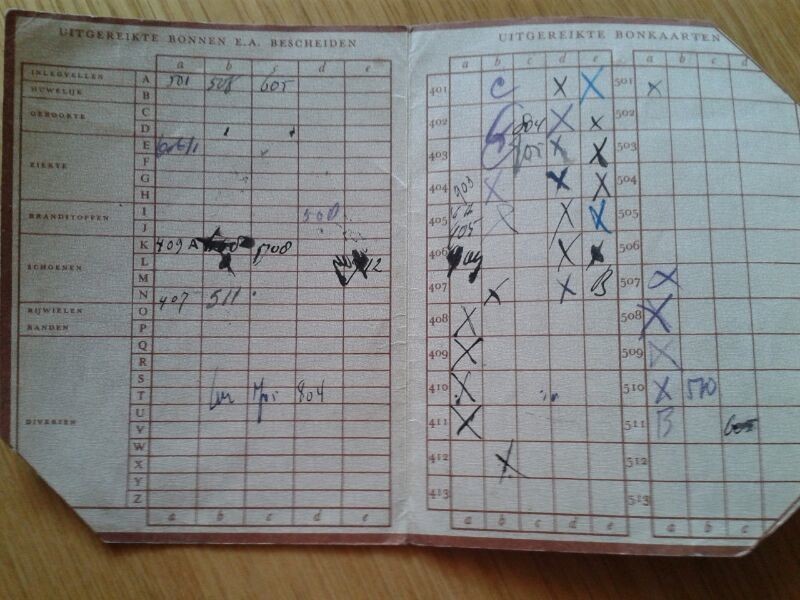 UITGEREIKTE BONNEN E.A. BESCHEIDEN
a b c d e
INLEGVELLEN A 501 508 605
HUWELIJK B
GEBOORTE C
D
ZIEKTE E
F
G
H
BRANDSTOFFEN I 508
J
SCHOENEN K 409 A 508
L 12
M
N 407 511
RIJWIELEN O
BANDEN P
Q
R
S
T 804
DIVERSEN U
V
W
X
Y
Z
a b c d e
UITGEREIKTE BONKAARTEN
a b c d e a b c d
401 C X X 501 X
402 804 X X 502
403 X X 503
404 903 X X X 504
405 X X X 505
406 X 506
407 X X B 507 X
408 X 508 X
409 X 509 X
410 X 510 X 510
411 X 511 B
412 X 512
413 513
a b c d e a b c